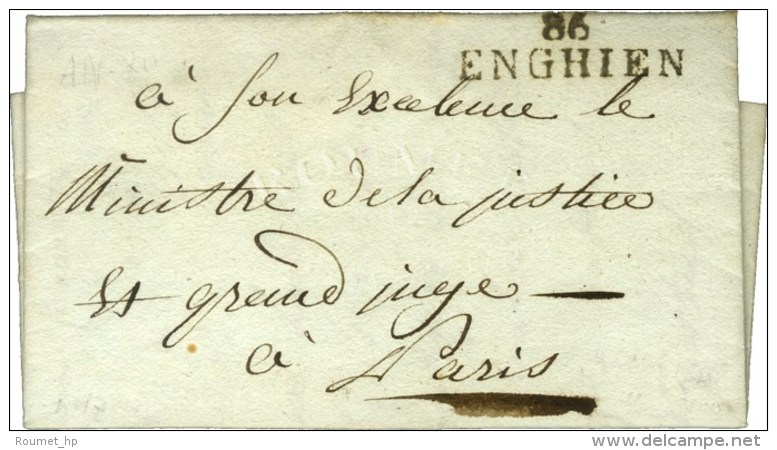 86
ENGHIEN
à Son Excelence le
Ministre de la justice
Et grand juge
à Paris
Roumet_hp
delcampe.net